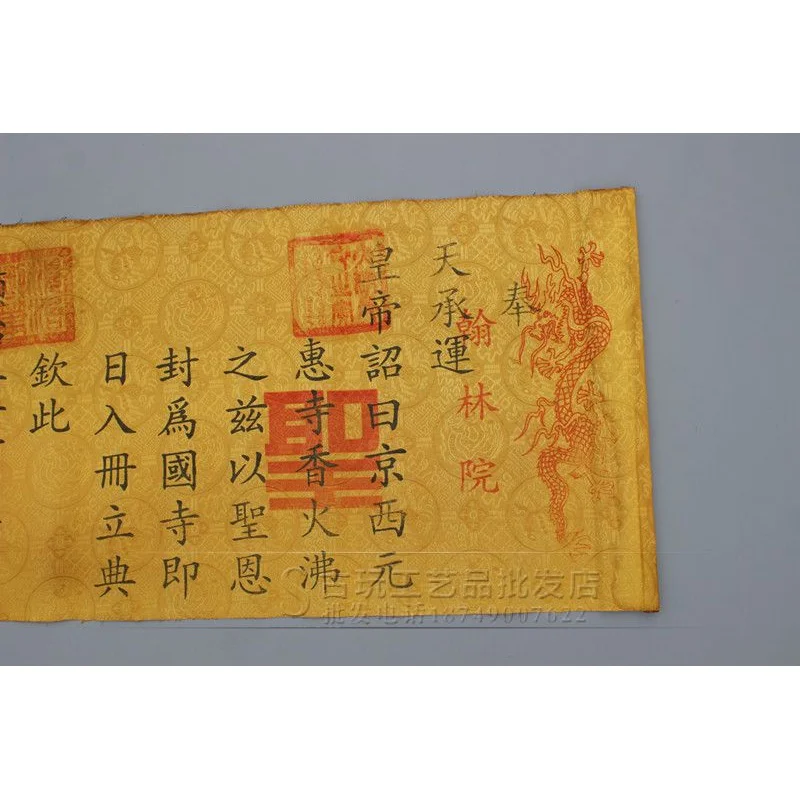 奉
天承運
翰林院
皇帝詔曰京西元
惠寺香火沸
之兹以聖恩
封爲國寺即
日入冊立典
欽此
聖
古玩工艺品批发店
批发电话18749007622